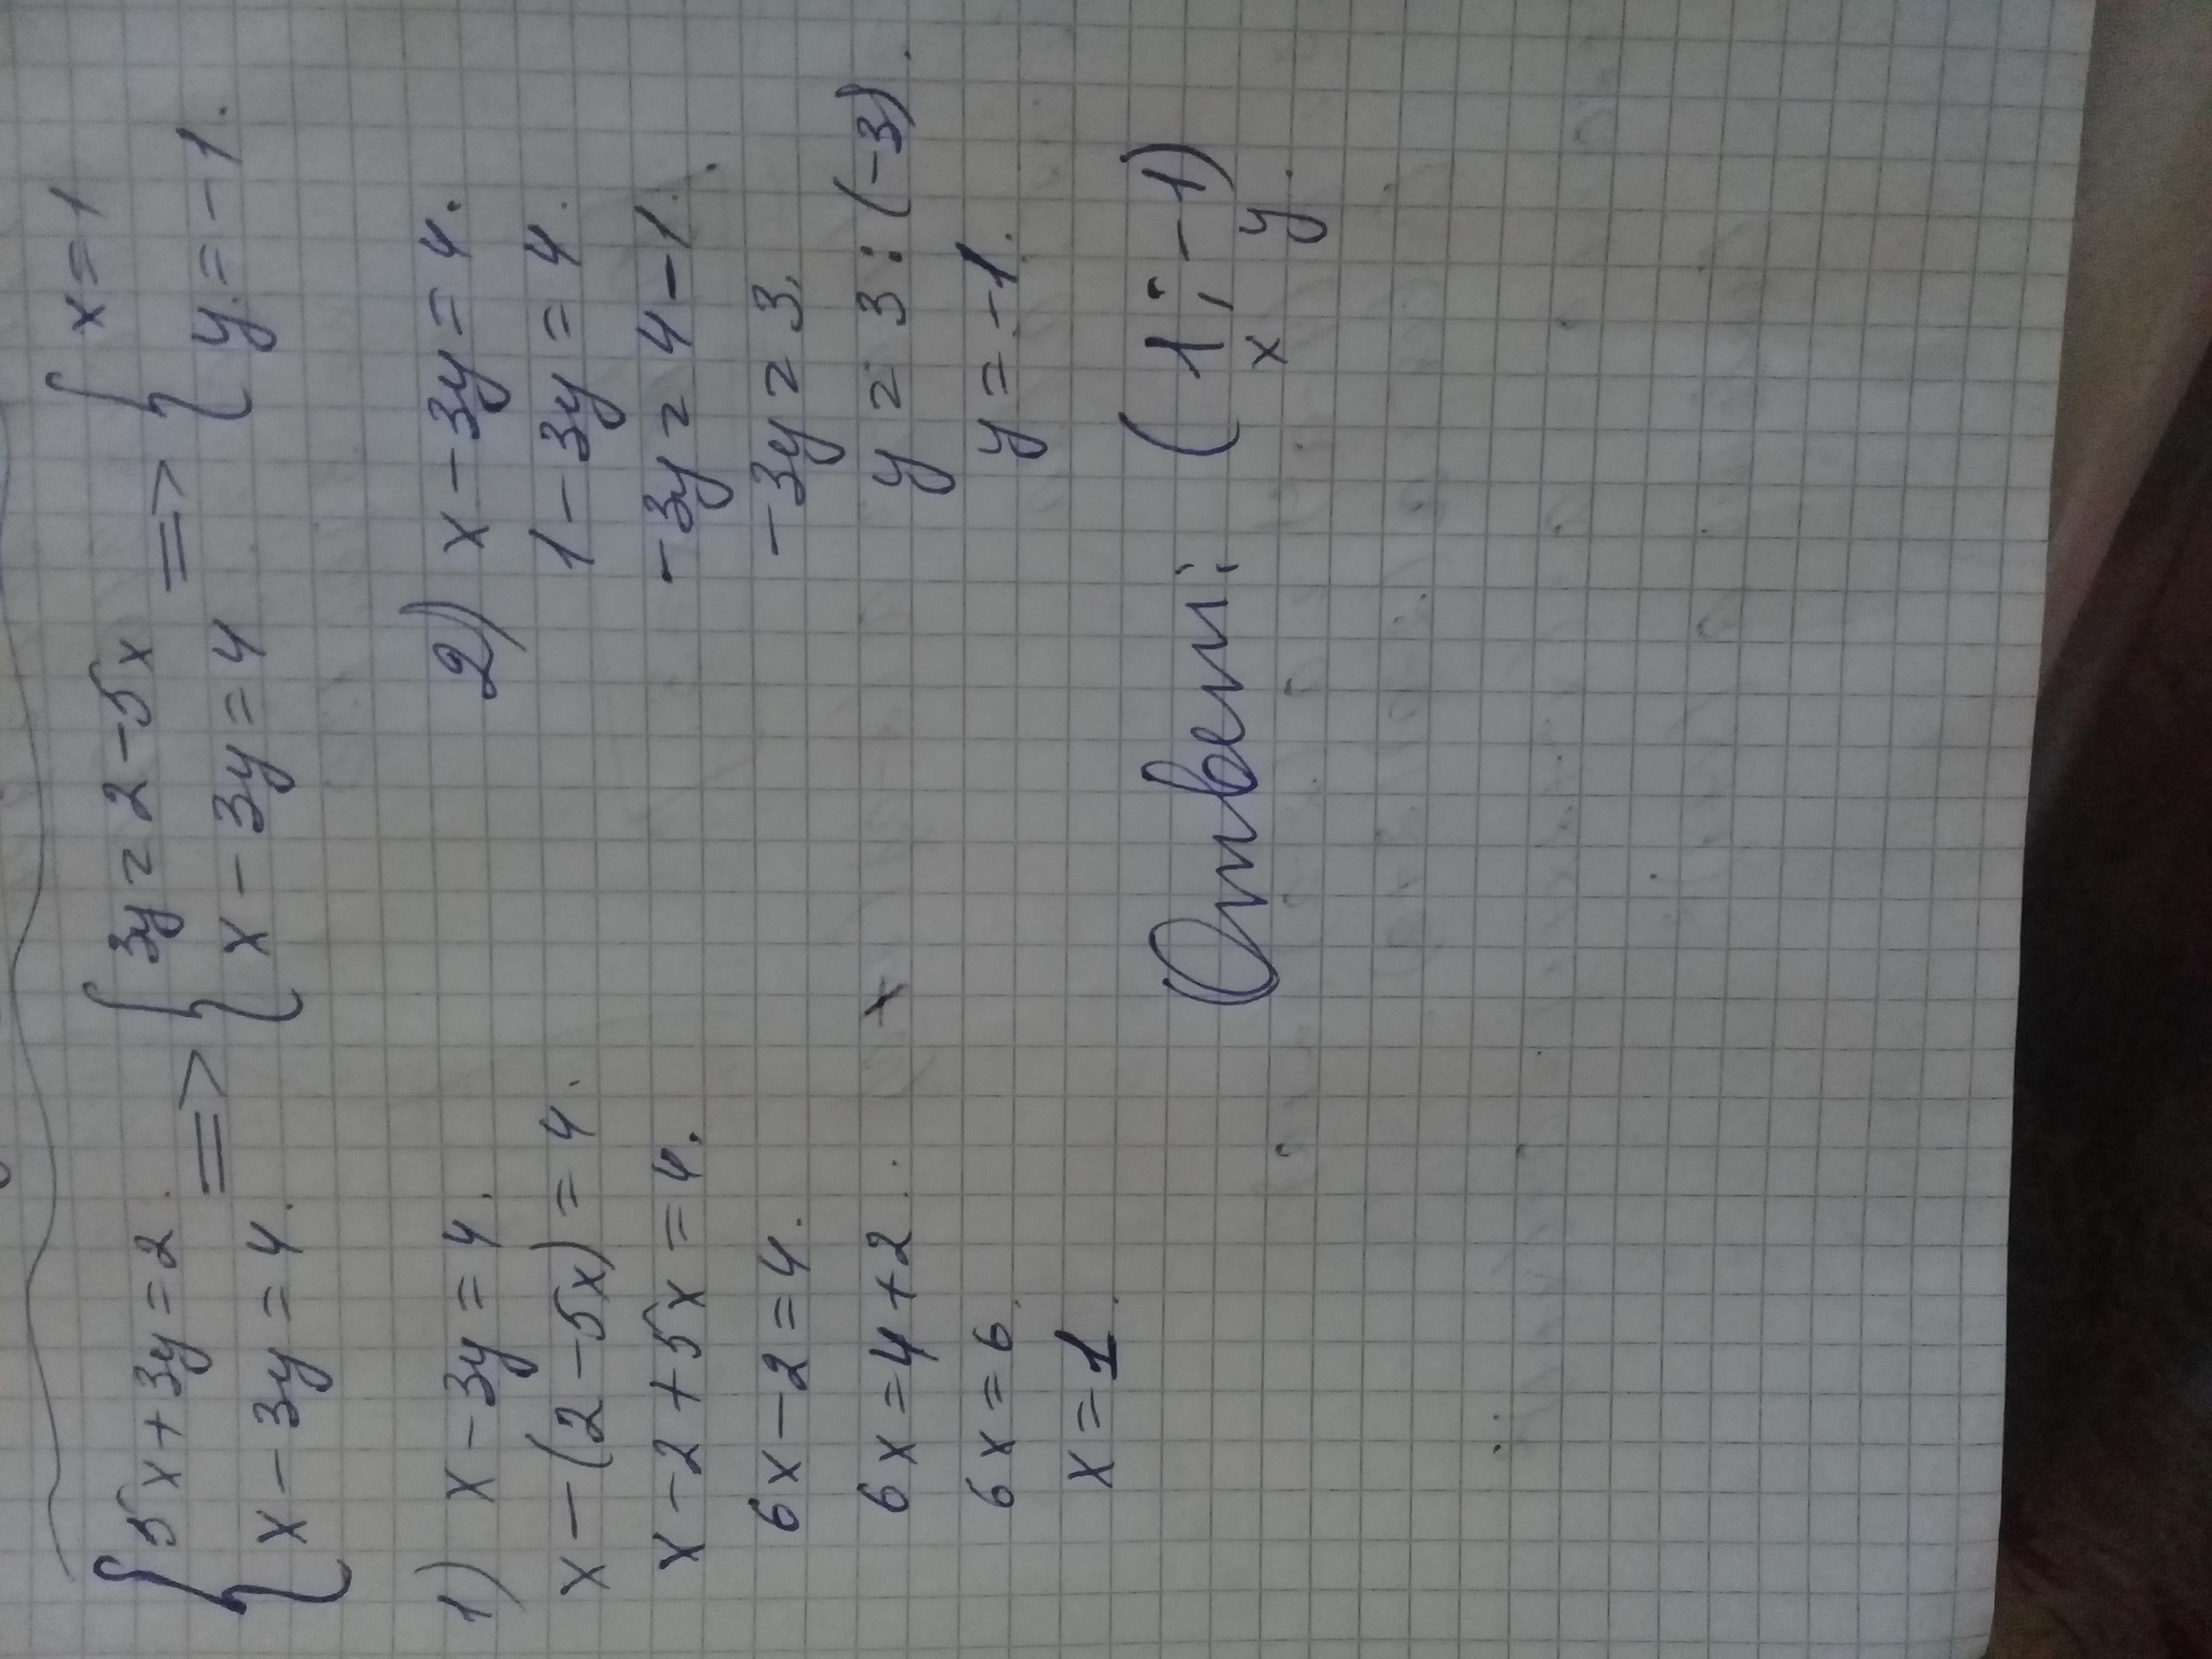 { 5x + 3y = 2. => { 3y = 2 - 5x => { x = 1
x - 3y = 4. x - 3y = 4 y = -1.
1) x - 3y = 4.
x - (2 - 5x) = 4.
x - 2 + 5x = 4.
6x - 2 = 4.
6x = 4 + 2.
6x = 6.
x = 1.
x
2) x - 3y = 4.
1 - 3y = 4.
-3y = 4 - 1.
-3y = 3.
y = 3 : (-3).
y = -1.
Ответ: (1; -1)
x y